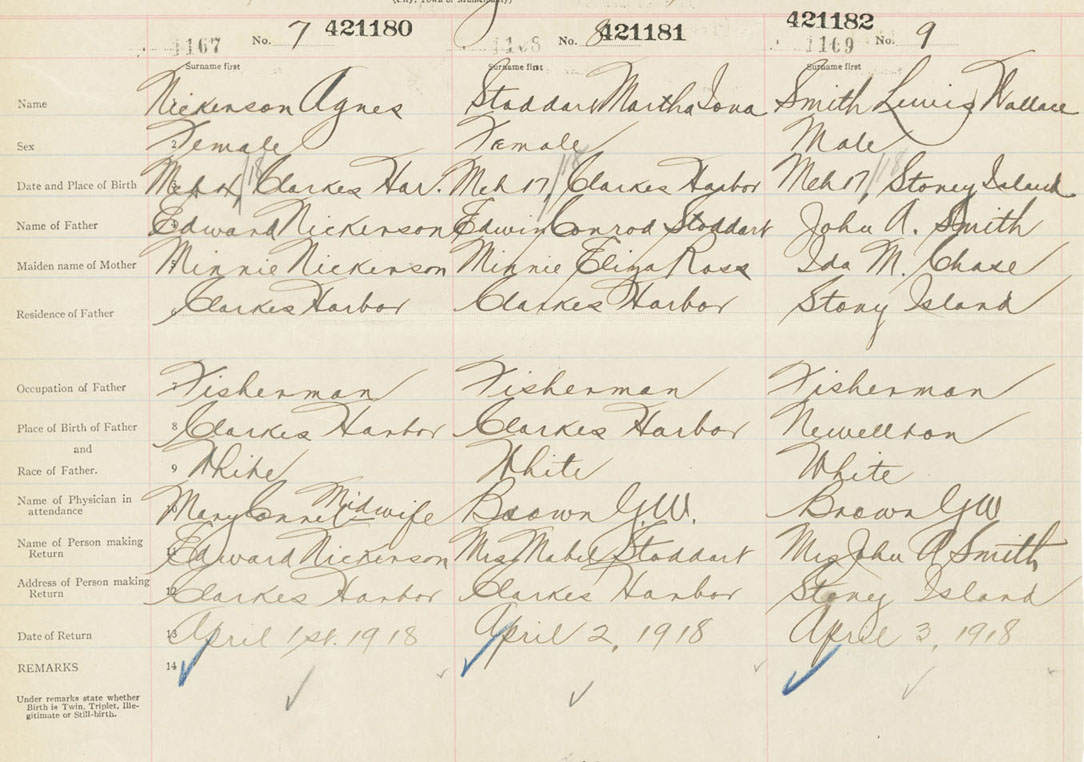 (City, Town or Municipality)
1167 No. 7 421180 No. 8 421181 421182 1169 No. 9
Surname first Surname first Surname first
Name Nickenson Agnes Stoddart Martha Iona Smith Lewis Wallace
Sex 2 Female Female Male
Date and Place of Birth Mch /18 Clarkes Har. Mch 17, /18 Clarkes Harbor Mch 17, /18 Stoney Island
Name of Father Edward Nickenson Edwin Conrod Stoddart John A. Smith
Maiden name of Mother Minnie Nickenson Minnie Eliza Ross Ida M. Chase
Residence of Father Clarkes Harbor Clarkes Harbor Stony Island
Occupation of Father 7 Fisherman Fisherman Fisherman
Place of Birth of Father 8 Clarkes Harbor Clarkes Harbor Newellton
and
Race of Father. 9 White White White
Name of Physician in Mary Midwife Brown G.W. Brown GW
attendance
Name of Person making Edward Nickenson Mrs Mabel Stoddart Mrs John A Smith
Return 11
Address of Person making Clarkes Harbor Clarkes Harbor Stoney Island
Return 12
Date of Return 13 April 1st. 1918 April 2, 1918 April 3, 1918
REMARKS 14
Under remarks state whether
Birth is Twin, Triplet, Ille-
gitimate or Still-birth.